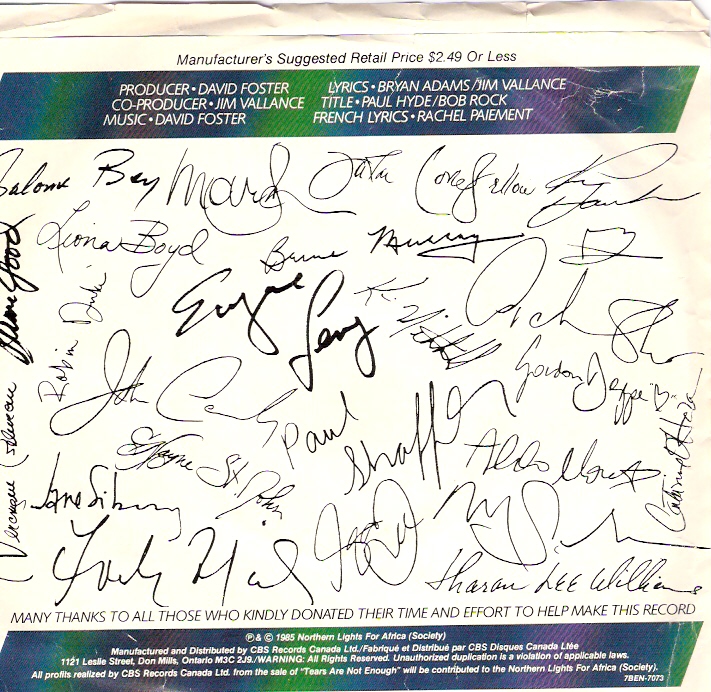 Manufacturer's Suggested Retail Price $2.49 Or Less
PRODUCER • DAVID FOSTER LYRICS • BRYAN ADAMS/JIM VALLANCE
CO-PRODUCER • JIM VALLANCE TITLE • PAUL HYDE/BOB ROCK
MUSIC • DAVID FOSTER FRENCH LYRICS • RACHEL PAIEMENT
Salome Bey
Liona Boyd
Bruce Murray
Robin Duke
Eugene Levy
John Candy
Paul Shaffer
Gordon Deppe
Wayne St. John
Aldo Nova
Jane Siberry
Catherine O'Hara
Sharon Lee Williams
MANY THANKS TO ALL THOSE WHO KINDLY DONATED THEIR TIME AND EFFORT TO HELP MAKE THIS RECORD
℗ & © 1985 Northern Lights For Africa (Society)
Manufactured and Distributed by CBS Records Canada Ltd./Fabriqué et Distribué par CBS Disques Canada Ltée
1121 Leslie Street, Don Mills, Ontario M3C 2J9./WARNING: All Rights Reserved. Unauthorized duplication is a violation of applicable laws.
All profits realized by CBS Records Canada Ltd. from the sale of "Tears Are Not Enough" will be contributed to the Northern Lights For Africa (Society).
7BEN-7073